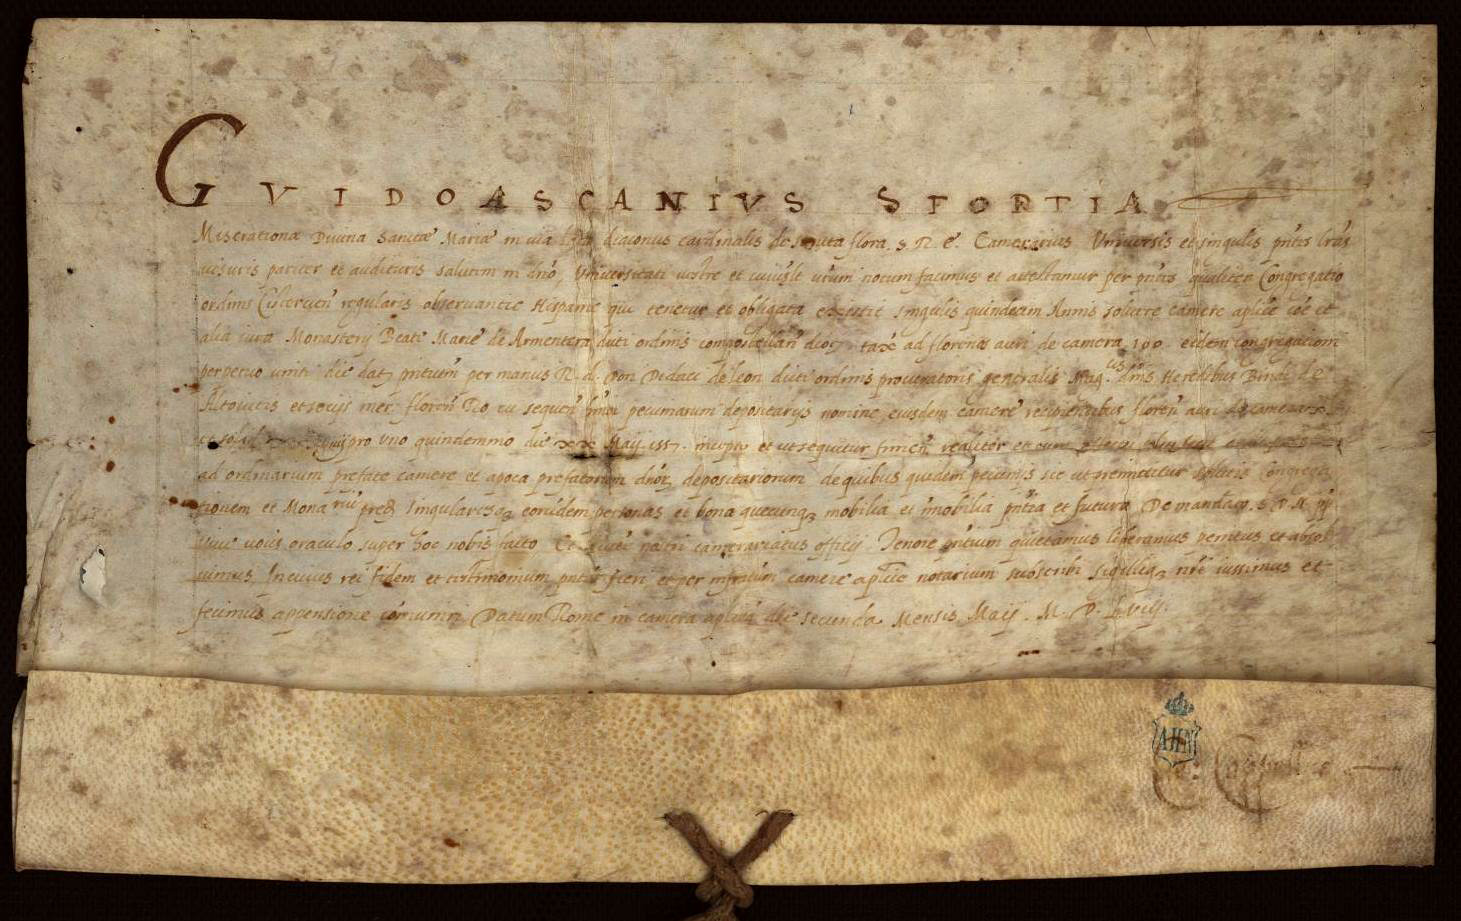 GVIDOASCANIVS SFORTIA
Miseratione Diuina Sanctae Mariae in uia lata diaconus cardinalis de sancta flora. S. R. E. Camerarius. Vniuersis et singulis pntes lras
uisuris pariter et audituris salutem in dno, Vniuersitati uestre et cuiuslt urum notum facimus et attestamur per pntes qualiter Congregatio
ordinis Cistercien regularis obseruantie Hispanie que tenetur et obligata existit singulis quindecim Annis soluere camere aplice coe et
alia iura Monasterij Beate Marie de Armentera dicti ordinis compostellan dioc, tax ad florenos auri de camera 100. eidem congregationi
perpetuo uniti die dat pntium per manus R. d. Don Didaci de leon dicti ordinis procuratoris generalis Mag.cis dnis Heredibus Bindi de
Altouitis et socijs mer. floren Ro. cu sequen pecuniarum depositarijs nomine eiusdem camere recipientibus floren auri de camera
pro uno quindennio die xx Maij 1557. incepto et ut sequitur finien realiter et cum effectu
ad ordinarium prefate camere et apoca prefatorum dnor depositariorum de quibus quidem pecunijs sic ut premittitur solutis Congrega
tionem et Mona.rium pred singularesq eorudem personas et bona quecunq mobilia et imobilia pntia et futura De mandato S. D. N. pp
uiue uocis oraculo super hoc nobis facto Et aucte nostri camerariatus officij Tenore pntium quietamus liberamus penitus et absol
uimus, In cuius rei fidem et testimonium pntes fieri et per infrum camere aplice notarium subscribi sigilliq nri iussimus et
fecimus appensione comuniri Datum Rome in camera aplica die secunda Mensis Maij. M. D. Lviij.
AHN